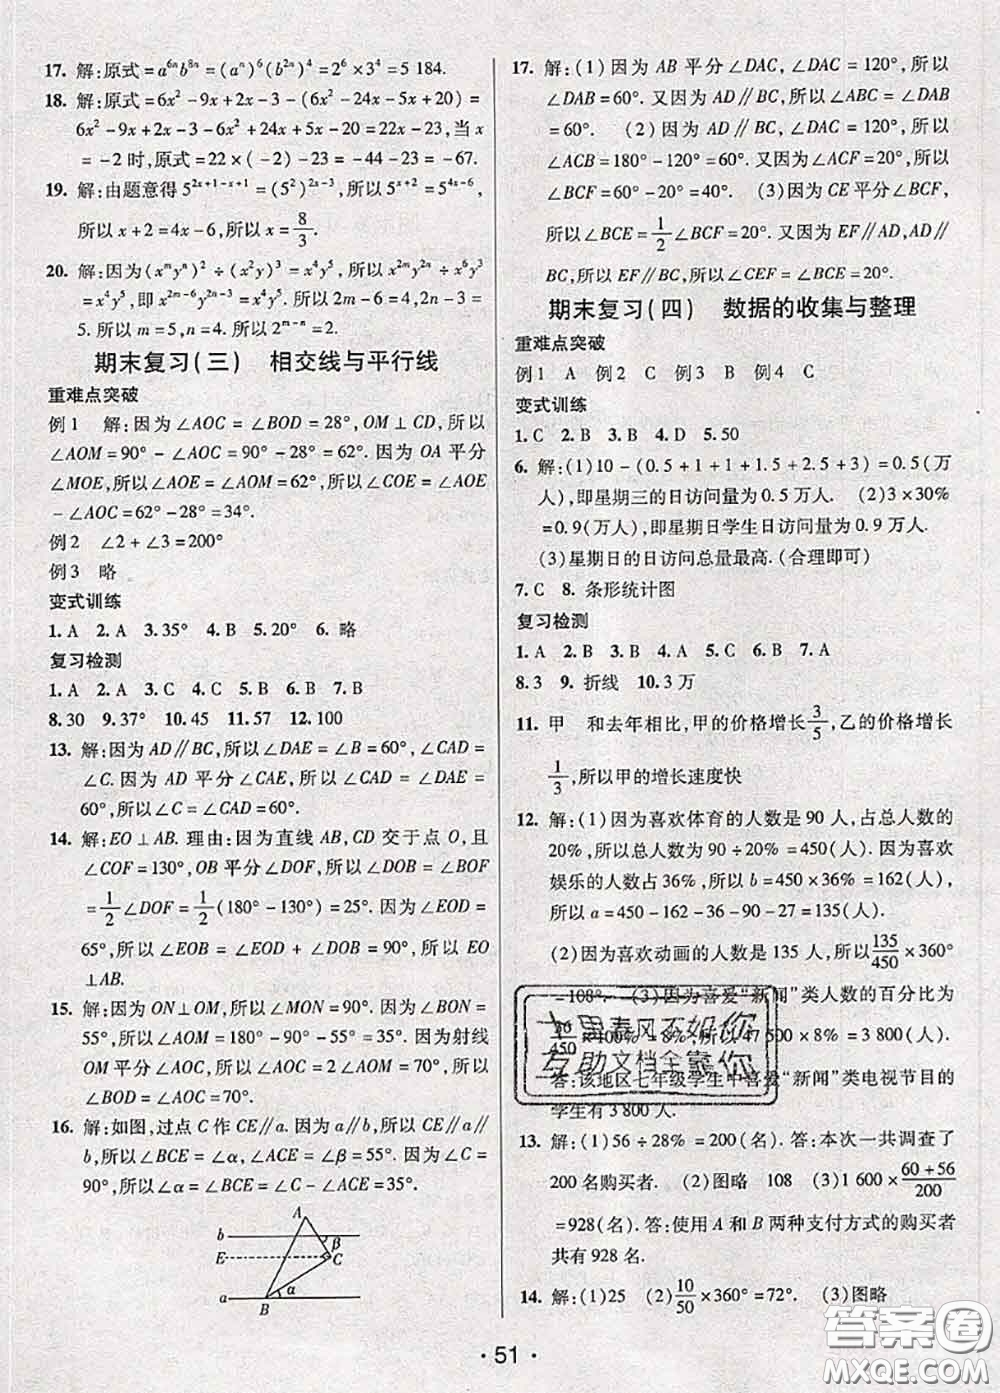 17. 解:原式=a^{6n}b^{8n}=(a^n)^6(b^{2n})^4=2^6×3^4=5 184.
18. 解:原式=6x²-9x+2x-3-(6x²-24x-5x+20)=
6x²-9x+2x-3-6x²+24x+5x-20=22x-23,当x
=-2时,原式=22×(-2)-23=-44-23=-67.
19. 解:由题意得5^{2x+1-x+1}=(5²)^{2x-3},所以5^{x+2}=5^{4x-6},
所以x+2=4x-6,所以x=8/3.
20. 解:因为(x^m y^n)²÷(x²y)³=x⁴y⁵,所以x^{2m}y^{2n}÷x⁶y³
=x⁴y⁵,即x^{2m-6}y^{2n-3}=x⁴y⁵.所以2m-6=4,2n-3=
5.所以m=5,n=4.所以2^{m-n}=2.
期末复习(三) 相交线与平行线
重难点突破
例1 解:因为∠AOC=∠BOD=28°,OM⊥CD,所以
∠AOM=90°-∠AOC=90°-28°=62°.因为OA平分
∠MOE,所以∠AOE=∠AOM=62°,所以∠COE=∠AOE
-∠AOC=62°-28°=34°.
例2 ∠2+∠3=200°
例3 略
变式训练
1. A 2. A 3. 35° 4. B 5. 20° 6. 略
复习检测
1. A 2. A 3. B 4. C 5. B 6. B 7. B
8. 30 9. 37° 10. 45 11. 57 12. 100
13. 解:因为AD∥BC,所以∠DAE=∠B=60°,∠CAD=
∠C.因为AD平分∠CAE,所以∠CAD=∠DAE=
60°,所以∠C=∠CAD=60°.
14. 解:EO⊥AB.理由:因为直线AB,CD交于点O,且
∠COF=130°,OB平分∠DOF,所以∠DOB=∠BOF
=1/2∠DOF=1/2(180°-130°)=25°.因为∠EOD=
65°,所以∠EOB=∠EOD+∠DOB=90°,所以EO
⊥AB.
15. 解:因为ON⊥OM,所以∠MON=90°.因为∠BON=
55°,所以∠AOM=180°-90°-55°=35°.因为射线
OM平分∠AOC,所以∠AOC=2∠AOM=70°,所以
∠BOD=∠AOC=70°.
16. 解:如图,过点C作CE∥a.因为a∥b,所以CE∥a∥
b,所以∠BCE=∠α,∠ACE=∠β=55°.因为∠C=
90°,所以∠α=∠BCE=∠C-∠ACE=35°.
A
b β
E C
a α
B
17. 解:(1)因为AB平分∠DAC,∠DAC=120°,所以
∠DAB=60°.又因为AD∥BC,所以∠ABC=∠DAB
=60°. (2)因为AD∥BC,∠DAC=120°,所以
∠ACB=180°-120°=60°.又因为∠ACF=20°,所以
∠BCF=60°-20°=40°. (3)因为CE平分∠BCF,
所以∠BCE=1/2∠BCF=20°.又因为EF∥AD,AD∥
BC,所以EF∥BC,所以∠CEF=∠BCE=20°.
期末复习(四) 数据的收集与整理
重难点突破
例1 A 例2 C 例3 B 例4 C
变式训练
1. C 2. B 3. B 4. D 5. 50
6. 解:(1)10-(0.5+1+1+1.5+2.5+3)=0.5(万
人),即星期三的日访问量为0.5万人. (2)3×30%
=0.9(万人),即星期日学生日访问量为0.9万人.
(3)星期日的日访问总量最高.(合理即可)
7. C 8. 条形统计图
复习检测
1. A 2. B 3. B 4. A 5. C 6. B 7. A
8. 3 9. 折线 10. 3万
11. 甲 和去年相比,甲的价格增长3/5,乙的价格增长
1/3,所以甲的增长速度快
12. 解:(1)因为喜欢体育的人数是90人,占总人数的
20%,所以总人数为90÷20%=450(人).因为喜欢
娱乐的人数占36%,所以b=450×36%=162(人),
所以a=450-162-36-90-27=135(人).
(2)因为喜欢动画的人数是135人,所以135/450×360°
=108°. (3)因为喜爱“新闻”类人数的百分比为
36/450×100%=8%,所以47 500×8%=3 800(人).
答:该地区七年级学生中喜爱“新闻”类电视节目的
学生有3 800人.
十里春风不如你
互助文档全靠你
13. 解:(1)56÷28%=200(名).答:本次一共调查了
200名购买者. (2)图略 108 (3)1 600×(60+56)/200
=928(名).答:使用A和B两种支付方式的购买者
共有928名.
14. 解:(1)25 (2)10/50×360°=72°. (3)图略
· 51 ·
答案圈
MXQE.COM